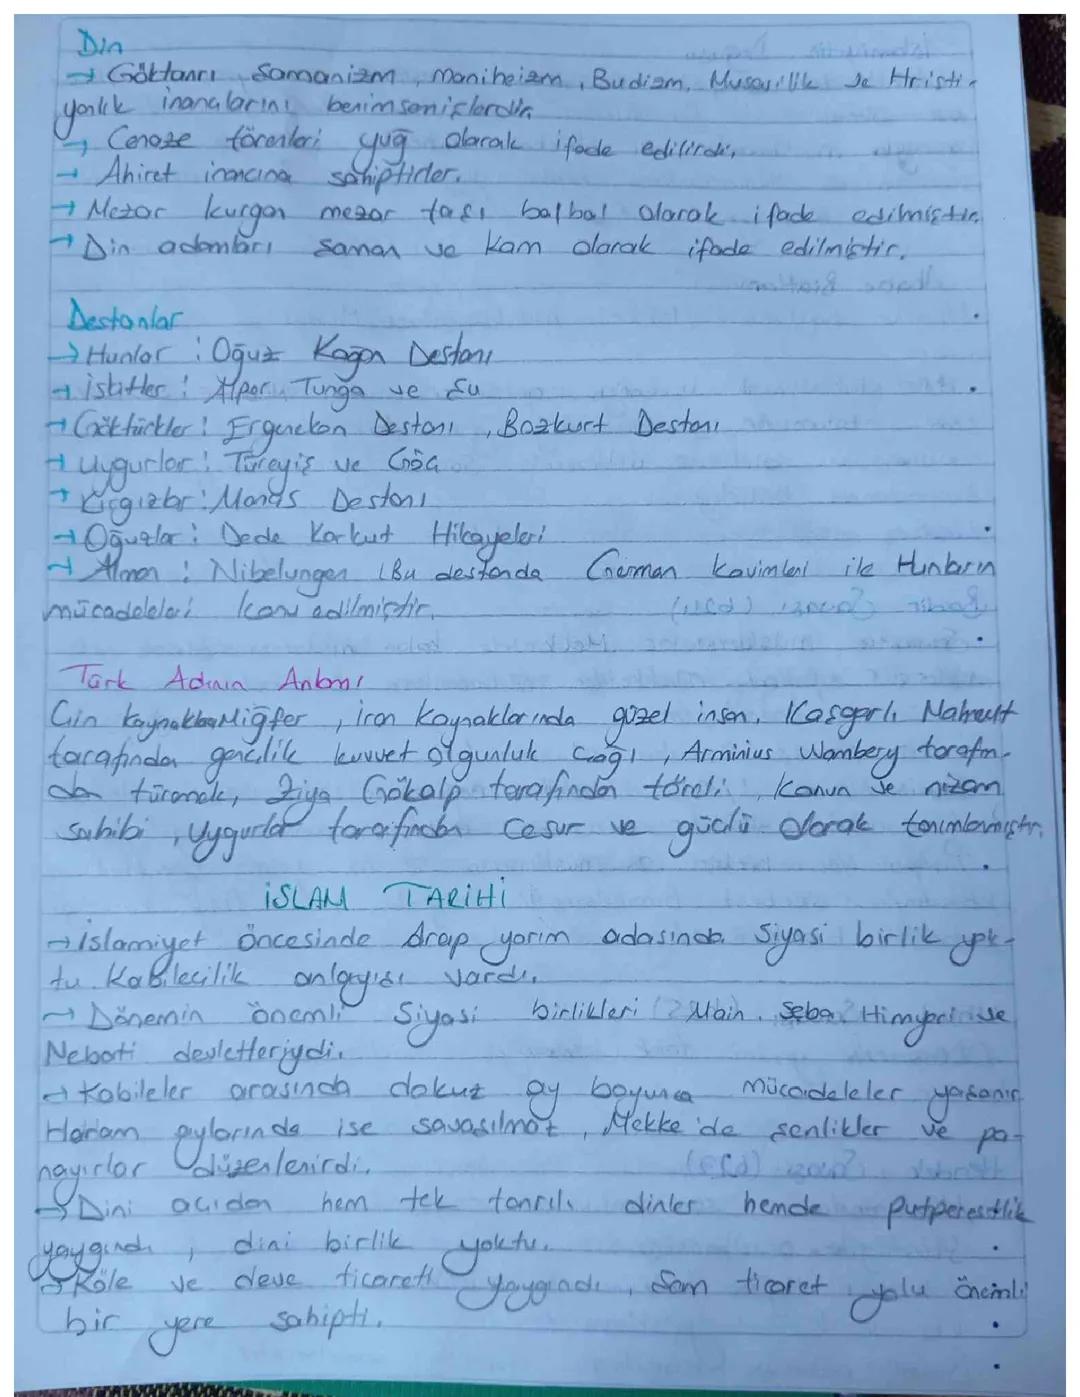 Din
→ Göktanrı, Şamanizm, maniheizm, Budizm, Musevilik ve Hristi-
yanlık inançlarını benimsemişlerdir.
→ Cenaze törenleri yuğ olarak ifade edilirdi.
→ Ahiret inancına sahiptirler.
→ Mezar kurgan mezar taşı balbal olarak ifade edilmiştir.
→ Din adamları şaman ve kam olarak ifade edilmiştir.
Destanlar
→ Hunlar : Oğuz Kağan Destanı
→ iskitler : Alper Tunga ve Şu
→ Göktürkler : Ergenekon Destanı, Bozkurt Destanı
→ Uygurlar : Türeyiş ve Göç
→ Kırgızlar : Manas Destanı
→ Oğuzlar : Dede Korkut Hikayeleri
→ Alman : Nibelungen (Bu destanda German kavimleri ile Hunların
mücadeleleri konu edilmiştir.
Türk Adının Anlamı
Çin kaynakları Miğfer, iran kaynaklarında güzel insan, Kaşgarlı Mahmut
tarafından gençlik kuvvet olgunluk çağı, Arminius Wambery tarafın-
dan türemek, Ziya Gökalp tarafından töreli, Kanun ve nizam
sahibi, Uygurlar tarafından Cesur ve güçlü olarak tanımlanmıştır.
İSLAM TARİHİ
→ islamiyet öncesinde Arap yarım adasında Siyasi birlik yok-
tu. Kabilecilik anlayışı vardı.
→ Dönemin önemli Siyasi birlikleri Main, Seba, Himyeri ve
Nebati devletleriydi.
→ Kabileler arasında dokuz ay boyunca mücadeleler yaşanır
Haram aylarında ise savaşılmaz, Mekke'de şenlikler ve pa-
nayırlar düzenlenirdi.
→ Dini açıdan hem tek tanrılı dinler hemde putperestlik
yaygındı, dini birlik yoktu.
→ Köle ve deve ticareti yaygındı, Şam ticaret yolu önemli
bir yere sahipti.